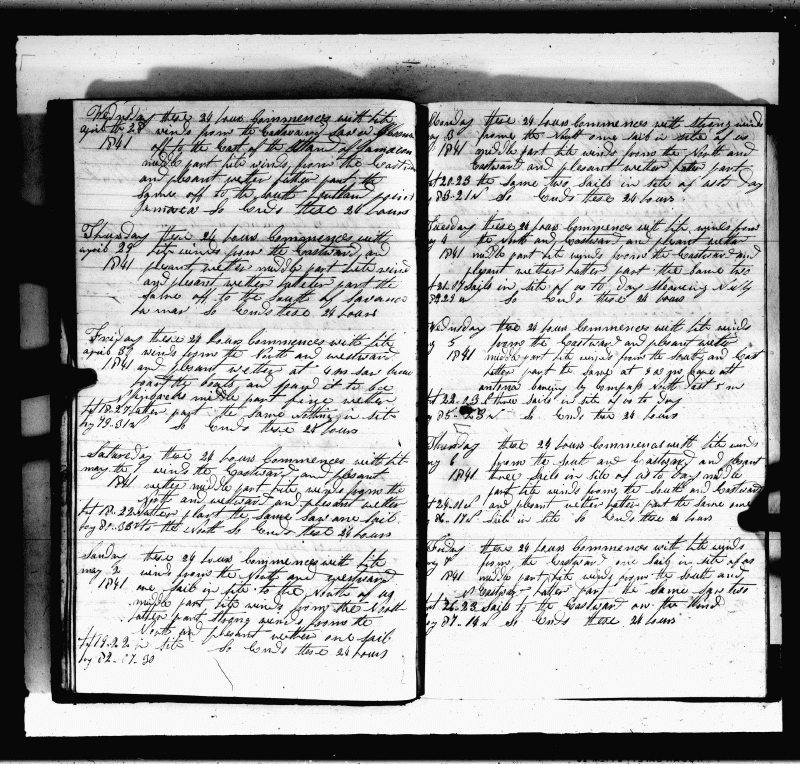 Wednsday these 24 hours Commences with lite
april the 28 winds from the Eastward Saw a
1841 off to the East of the Island of Jamacca
middle part lite winds from the East
and plesant wether latter part the
Same off to the South
Jamaca So Ends these 24 hours
Thursday these 24 hours Commences with
april 29 lite winds from the Eastward and
1841 plesant wether middle part lite wind
and plesant wether latter part the
Same off to the South of Savanna
la mar So Ends these 24 hours
Friday these 24 hours Commences with lite
april 30 winds from the North and westward
1841 and plesant wether at
the boats and
middle part fine wether
lat 18.27 latter part the Same nothing in site
log 79.31 W So Ends these 24 hours
Saturday these 24 hours Commences with lite
may the 1 winds the Eastward and plesant
1841 wether middle part lite winds from the
North and westward and plesant wether
lat 18.22 latter part the Same Saw one Sail
log 80.33 W to the North So Ends these 24 hours
Sunday these 24 hours Commences with lite
may 2 wind from the North and
1841 one Sail in Site to the North of us
middle part lite winds from the North
latter part Strong winds from the
North and plesant wether one Sail
lat 19.22 N in Site So Ends these 24 hours
log 82.07.30
Monday these 24 hours Commences with Strong winds
3 from the North one Sail in Site of us
1841 middle part lite winds from the North and
Eastward and plesant wether latter part
lat 20.23 the Same two Sails in Site of us to Day
83.21 W So Ends these 24 hours
Tuesday these 24 hours Commences with lite winds from
4 the North and Eastward and plesant wether
1841 middle part lite winds from the Eastward and
plesant wether latter part the Same two
lat 21.17 Sails in Site of us to day Stearing
W So Ends these 24 hours
Wednsday these 24 hours Commences with lite winds
5 from the Eastward and plesant wether
1841 middle part lite winds from the South and East
latter part the Same at
antonia by Compass North East
lat 22.03 three Sails in Site of us to Day
85. W So Ends these 24 hours
Thursday these 24 hours Commences with lite winds
6 from the South and Eastward and plesant
1841 three Sails in Site of us to Day middle
part lite winds from the South and Eastward
and plesant wether latter part the Same one
86.17 W Sail in Site So Ends these 24 hours
Friday these 24 hours Commences with lite winds
7 from the Eastward one Sail in Site of us
1841 middle part lite winds from the South and
Eastward latter part the Same Saw two
26.23 Sails to the Eastward on the Wind
87.14 W So Ends these 24 hours